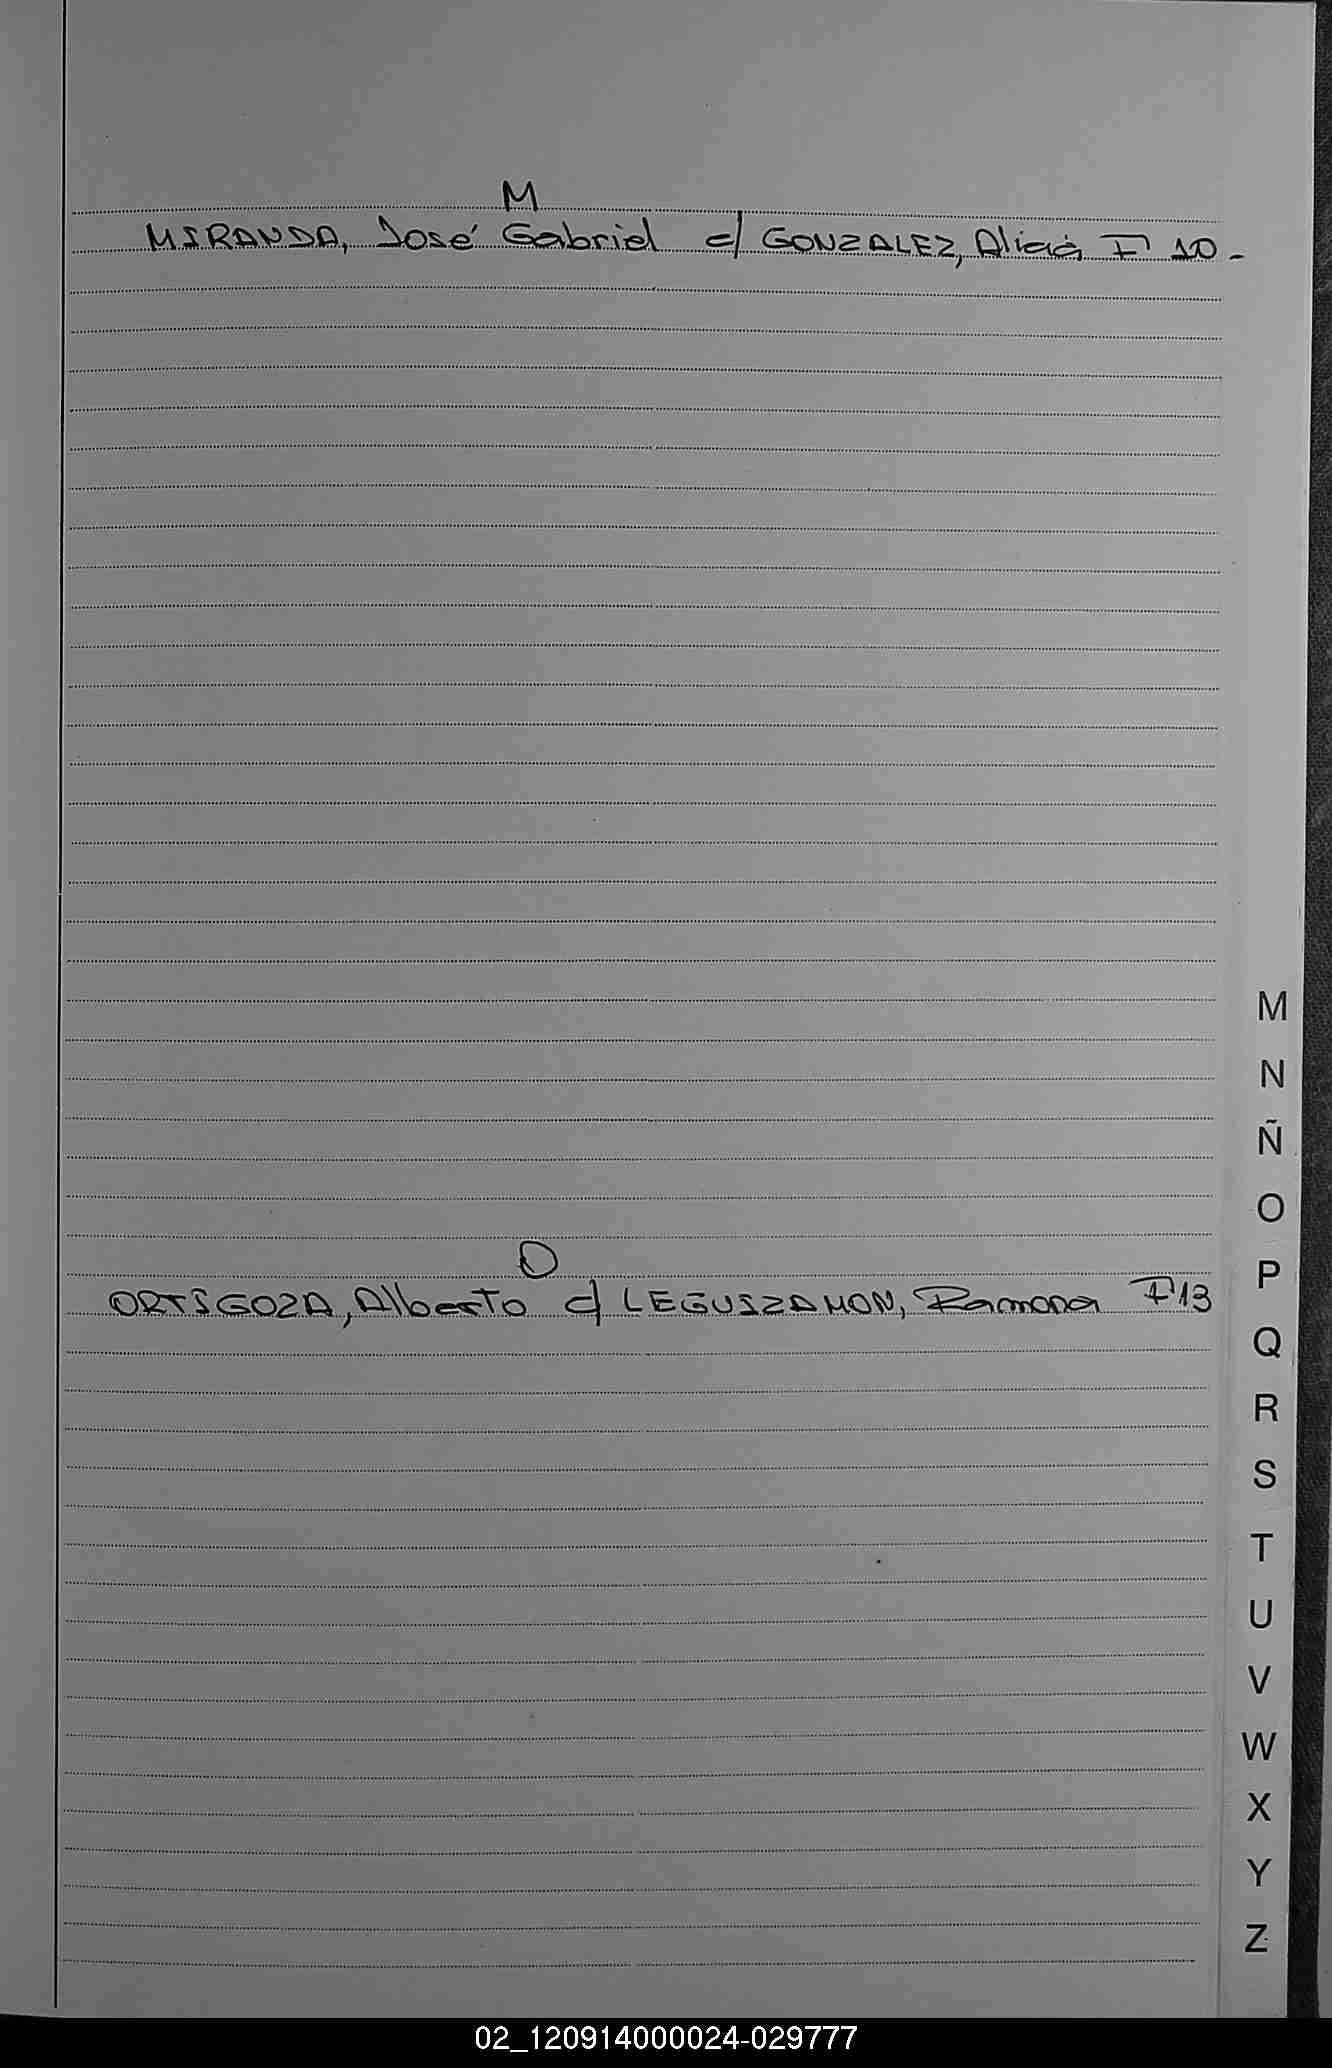 M
MIRANDA, José Gabriel c/ GONZALEZ, Alicia Fº 10-
O
ORTIGOZA, Alberto c/ LEGUIZAMON, Ramona Fº 13
M
N
Ñ
O
P
Q
R
S
T
U
V
W
X
Y
Z
02_120914000024-029777